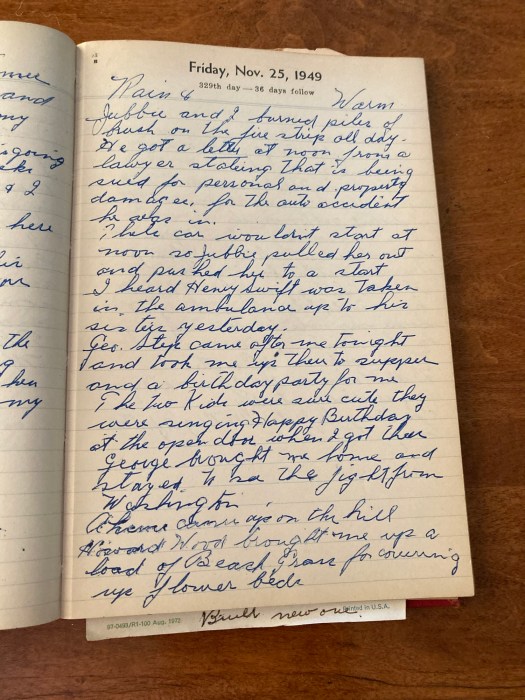 mee
and
my
going
sks
& 2
here
his
on
the
g
her
my
Friday, Nov. 25, 1949
329th day — 36 days follow
Rain & Warm
Jubbie and I burned piles of
brush on the fire strip all day.
He got a letter at noon from a
lawyer stateing that is being
sued for personal and property
damages, for the auto accident
he was in.
car wouldnt start at
noon so Jubbie pulled her out
and pushed her to a start
I heard Henry Swift was taken
in the ambulance up to his
sisters yesterday.
Geo. came after me tonight
and took me up their to supper
and a birthday party for me
The two Kids were sure cute they
were singing Happy Birthday
at the open door when I got their
George brought me home and
stayed to see the fight from
Washington
came up on the hill
Howard Wood brought me up a
load of Beach Grass for covering
up flower beds
67-0493/R1-100 Aug. 1972
Built new one.
Printed in U.S.A.